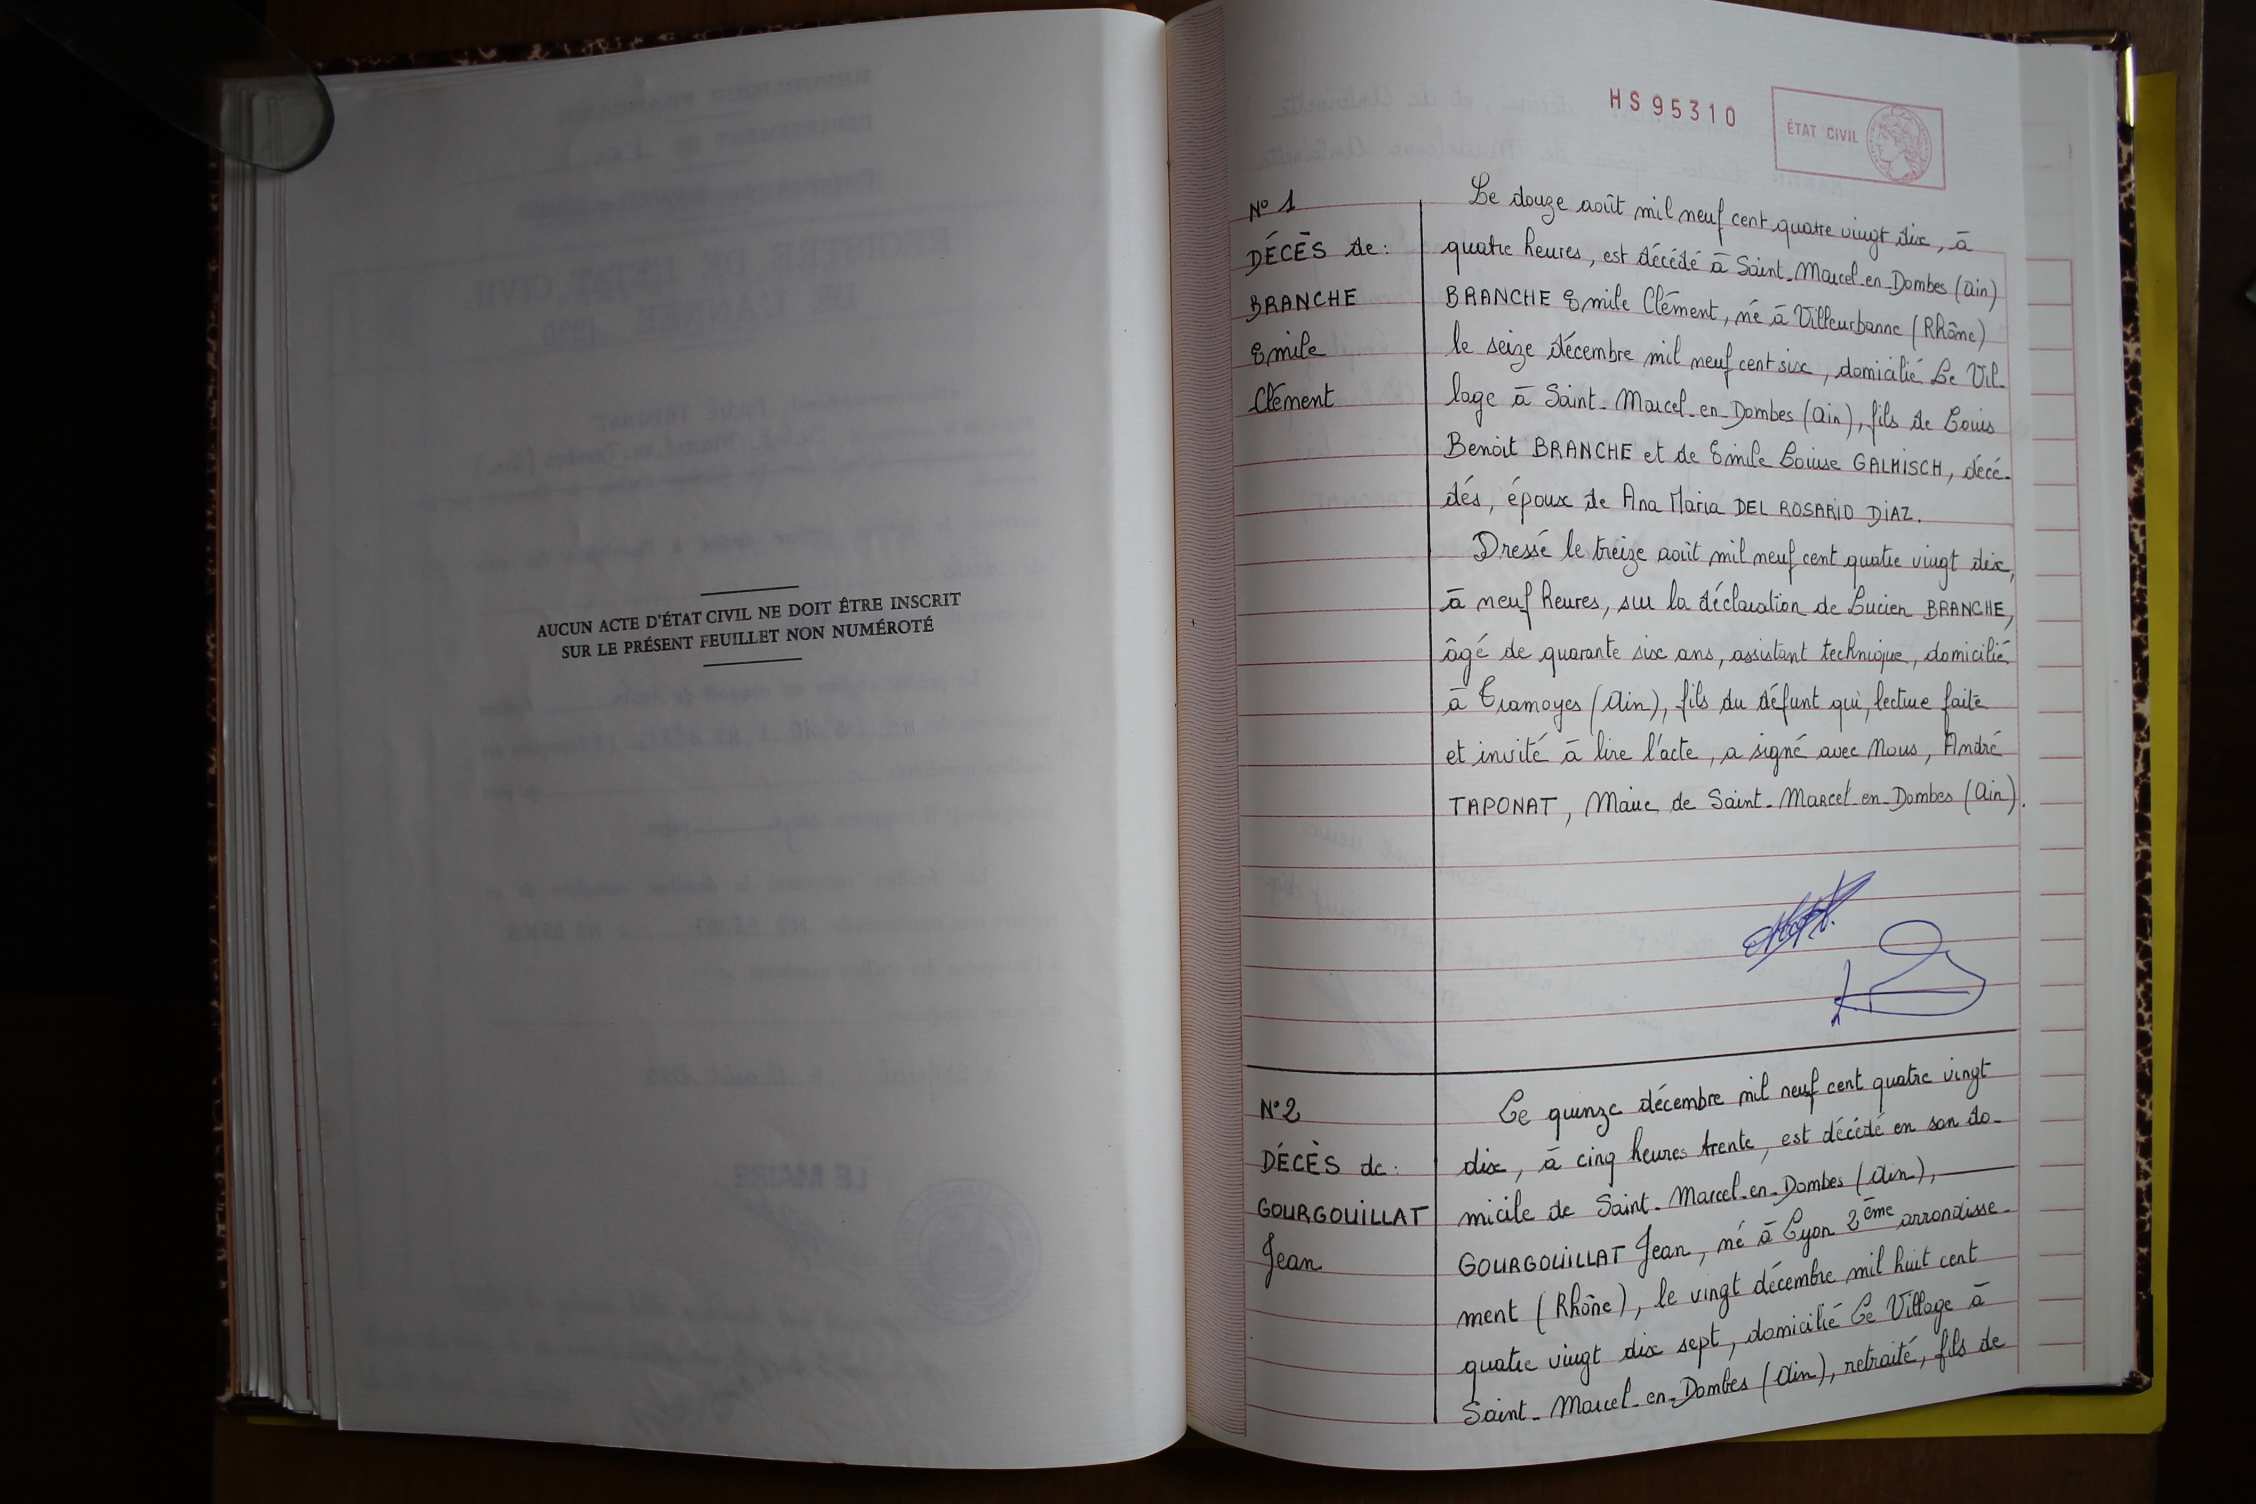 AUCUN ACTE D'ÉTAT CIVIL NE DOIT ÊTRE INSCRIT
SUR LE PRÉSENT FEUILLET NON NUMÉROTÉ
HS95310
ÉTAT CIVIL
N° 1
DÉCÈS de :
BRANCHE
Emile
Clément
Le douze août mil neuf cent quatre vingt dix, à
quatre heures, est décédé à Saint-Marcel-en-Dombes (Ain)
BRANCHE Emile Clément, né à Villeurbanne (Rhône)
le seize décembre mil neuf cent six, domicilié Le Vil-
lage à Saint-Marcel-en-Dombes (Ain), fils de Louis
Benoit BRANCHE et de Emile Louise GALMISCH, décé-
dés, époux de Ana Maria DEL ROSARIO DIAZ.
Dressé le treize août mil neuf cent quatre vingt dix,
à neuf heures, sur la déclaration de Lucien BRANCHE,
âgé de quarante six ans, assistant technique, domicilié
à Tramoyes (Ain), fils du défunt qui, lecture faite
et invité à lire l'acte, a signé avec Nous, André
TAPONAT, Maire de Saint-Marcel-en-Dombes (Ain).
N° 2
DÉCÈS de :
GOURGOUILLAT
Jean
Le quinze décembre mil neuf cent quatre vingt
dix, à cinq heures trente, est décédé en son do-
micile de Saint-Marcel-en-Dombes (Ain),
GOURGOUILLAT Jean, né à Lyon 2ème arrondisse-
ment (Rhône), le vingt décembre mil huit cent
quatre vingt dix sept, domicilié Le Village à
Saint-Marcel-en-Dombes (Ain), retraité, fils de